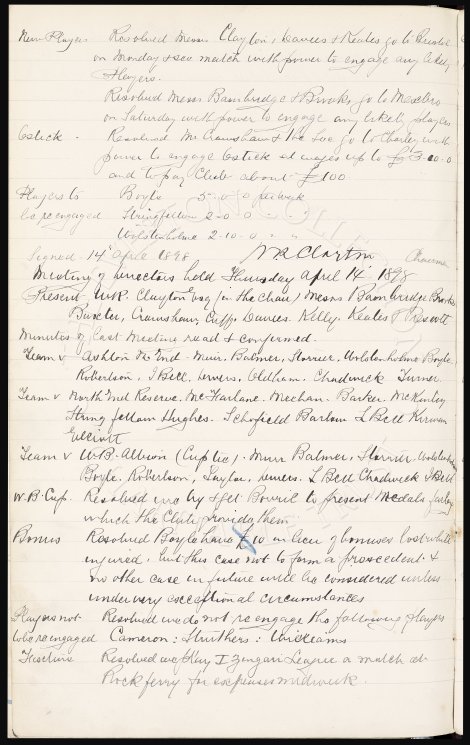 New Players Resolved Messrs Clayton, Davies & Keates go to Bristol
on Monday & see match with power to engage any likely
Players.
Resolved Messrs Bainbridge & Brooks go to
on Saturday with power to engage any likely players
Estick. Resolved Mr Cranshaw & the Sec go to Chorley with
power to engage Estick at wages up to £3-10-0
and to pay Club about £100
Players to Boyle 5-0-0 per week
be re engaged Stringfellow 2-0-0 " "
Wolstenholme 2-10-0 " "
Signed 14 April 1898 W R Clayton Chairman
Meeting of Directors held Thursday April 14 1898
Present W.R. Clayton Esq (in the chair) Messrs Bainbridge Brooks
Buxter, Cranshaw, Cuffe Davies. Kelly. Keates &
Minutes of Last Meeting read & confirmed.
Team v Ashton N. End - Muir, Balmer, Storrier, Wolstenholme Boyle,
Robertson, J Bell. Divers, Oldham. Chadwick Turner.
Team v North End Reserve. McFarlane. Meehan. Barker. McKinley
Stringfellow Hughes. Schofield Barlow L Bell Kirwan
Elliott
Team v W.B. Albion (Cup tie). Muir Balmer, Storrier, Wolstenholme
Boyle. Robertson, Taylor, Divers. L Bell Chadwick J Bell
W.B. Cup. Resolved we try & get Bovril to present medals failing
which the Club provide them.
Bonus Resolved Boyle have £10 in lieu of bonuses lost whilst
injured, but this case not to form a precedent &
no other case in future will be considered unless
under very exceptional circumstances
Players not Resolved we do not re engage the following Players
to be re engaged Cameron: Struthers: Williams
Fixture Resolved we Play I Zingari League a match at
Rockferry for expenses midweek.